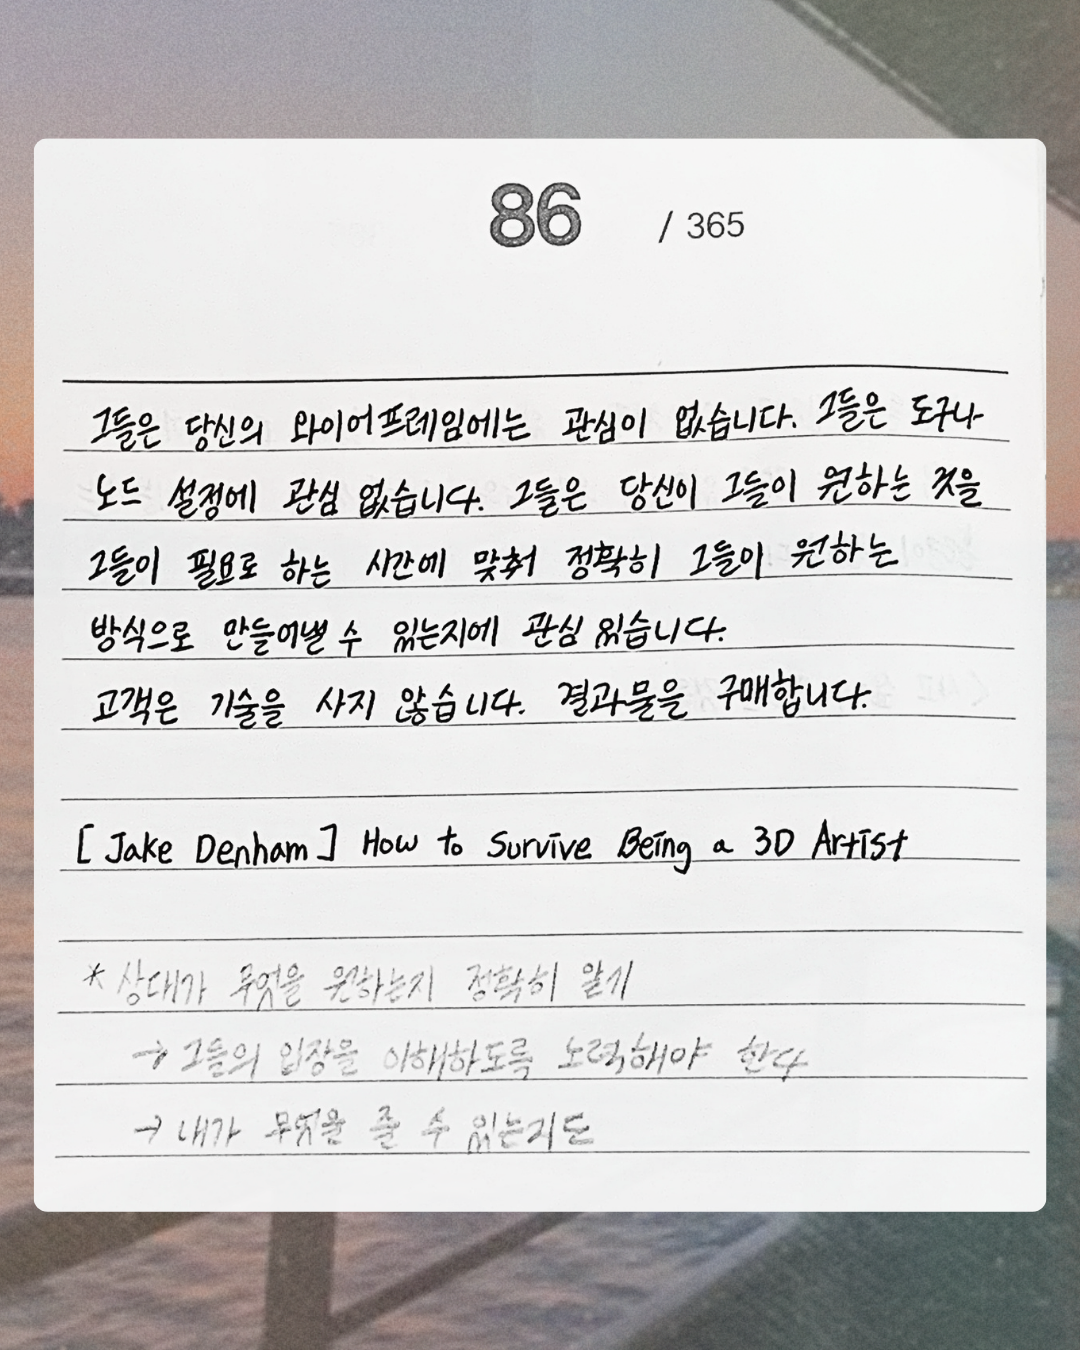 86 / 365
그들은 당신의 와이어프레임에는 관심이 없습니다. 그들은 도구나
노드 설정에 관심 없습니다. 그들은 당신이 그들이 원하는 것을
그들이 필요로 하는 시간에 맞춰 정확히 그들이 원하는
방식으로 만들어낼 수 있는지에 관심 있습니다.
고객은 기술을 사지 않습니다. 결과물을 구매합니다.
[Jake Denham] How to Survive Being a 3D Artist
* 상대가 무엇을 원하는지 정확히 알기
→ 그들의 입장을 이해하도록 노력해야 한다
→ 내가 무엇을 줄 수 있는지도